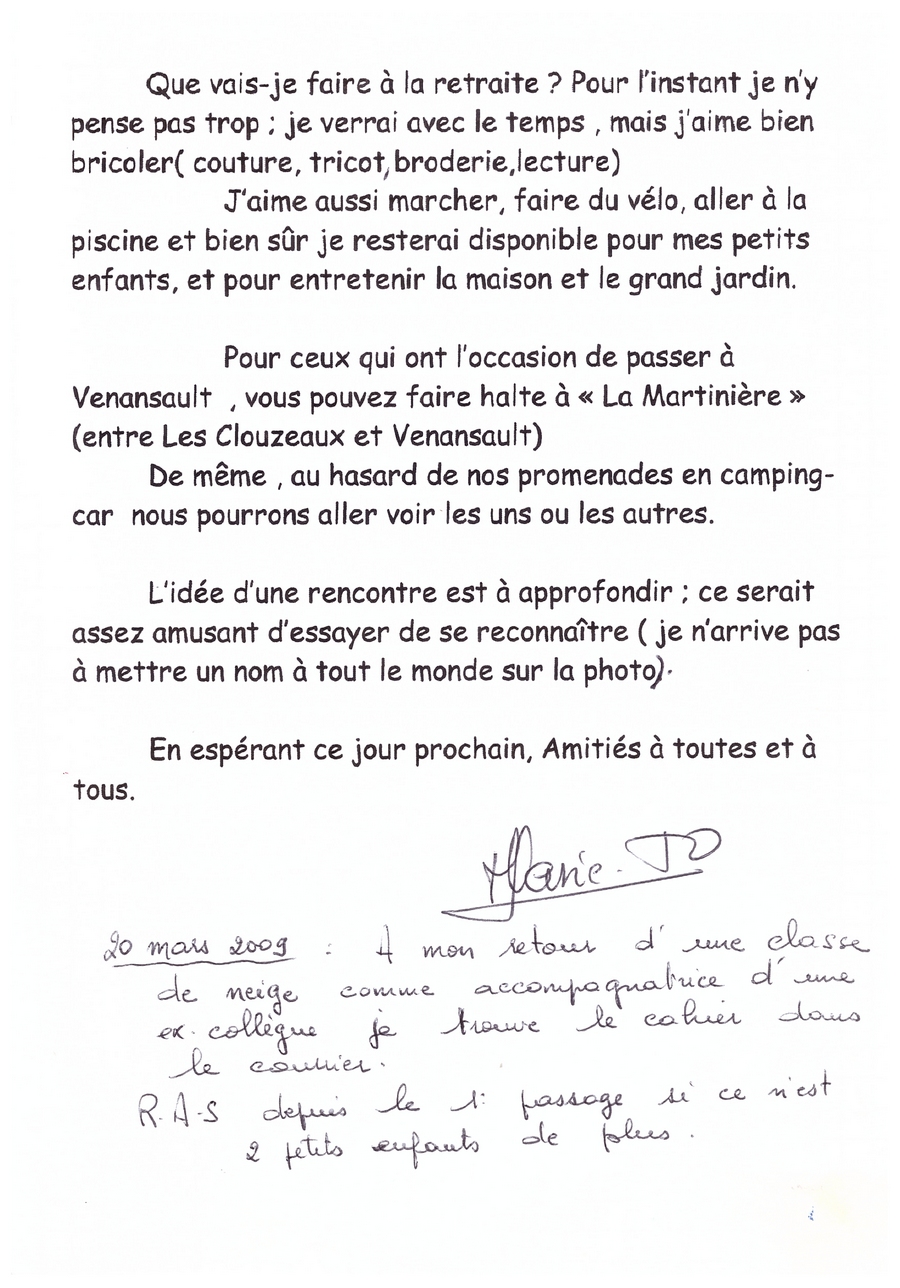 Que vais-je faire à la retraite ? Pour l'instant je n'y
pense pas trop ; je verrai avec le temps , mais j'aime bien
bricoler( couture, tricot, broderie,lecture)
J'aime aussi marcher, faire du vélo, aller à la
piscine et bien sûr je resterai disponible pour mes petits
enfants, et pour entretenir la maison et le grand jardin.
Pour ceux qui ont l'occasion de passer à
Venansault , vous pouvez faire halte à « La Martinière »
(entre Les Clouzeaux et Venansault)
De même , au hasard de nos promenades en camping-
car nous pourrons aller voir les uns ou les autres.
L'idée d'une rencontre est à approfondir ; ce serait
assez amusant d'essayer de se reconnaître ( je n'arrive pas
à mettre un nom à tout le monde sur la photo).
En espérant ce jour prochain, Amitiés à toutes et à
tous.
Marie-Jo
20 mars 2009 : A mon retour d'une classe
de neige comme accompagnatrice d'une
ex. collègue je trouve le cahier dans
le courrier.
R.A.S depuis le 1: passage si ce n'est
2 petits enfants de plus.